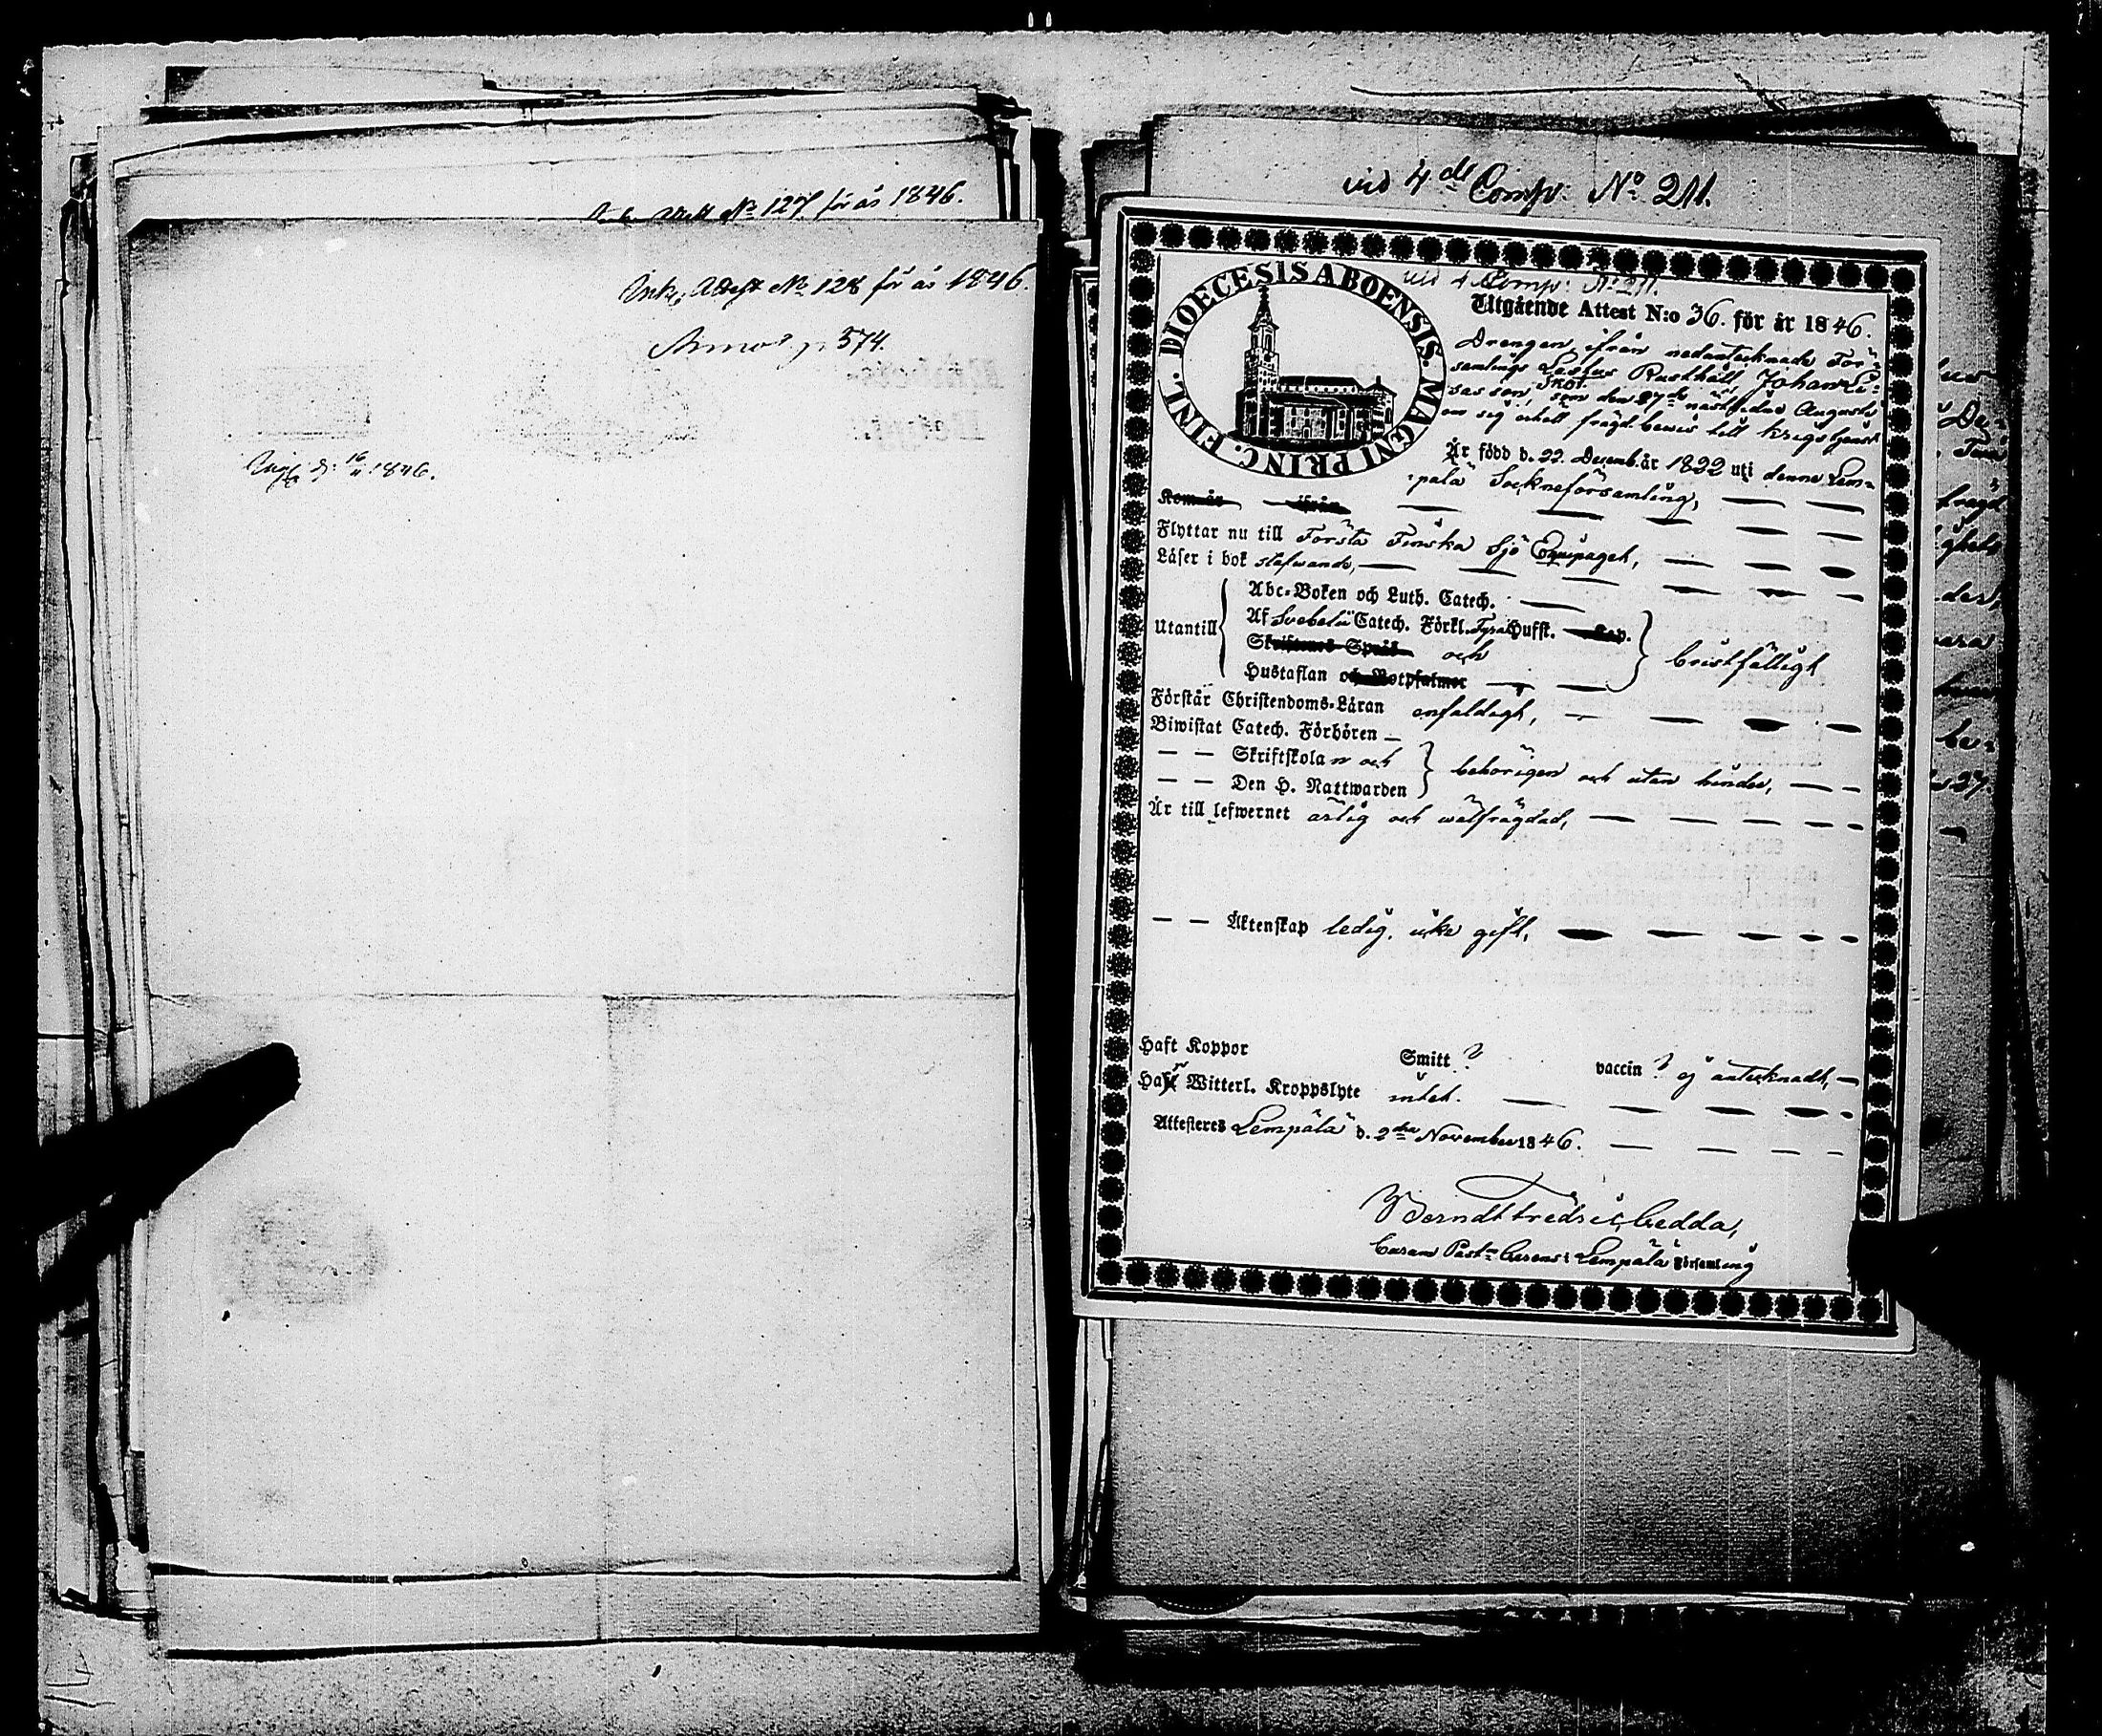 Attest No 127 för år 1846.
Ink. Attest No 128 för år 1846.
p. 574.
d. 16/11 1846.
vid 4de Comp: No 211.
DIOECESIS ABOENSIS. MAGNI PRINC. FINL.
vid 4 Comp: No 211.
Utgående Attest N:o 36. för år 1846.
Drengen ifrån nedantecknade För-
samlings Rusthåll, Johan
son, som den 27de Augusti
om sig erhöll frägd bewis till krigstjenst
Är född d. 22. Decemb. år 1822 uti denne Lem-
pälä Sockneförsamling,
Kom år ifrån
Flyttar nu till Första Finska Sjö Equipaget,
Läser i bok stafwande,
Abc-Boken och Luth. Catech.
Utantill Af Svebelii Catech. Förkl. Hufst. Kap.
Skriftenes Språk och bristfälligt
Hustaflan och Botpsalmer
Förstår Christendoms-Läran enfaldigt,
Biwistat Catech. Förhören
Skriftskolan och behörigen och utan hinder,
Den H. Nattwarden
Är till lefwernet ärlig och wälfrägdad,
Äktenskap ledig, icke gift,
Haft Koppor Smitt ? vaccin ? ej antecknadt,
Har Witterl. Kroppslyte intet.
Attesteras Lempälä d. 2dra November 1846.
Berndt Fredric Gedda,
Past. Lempälä Församling